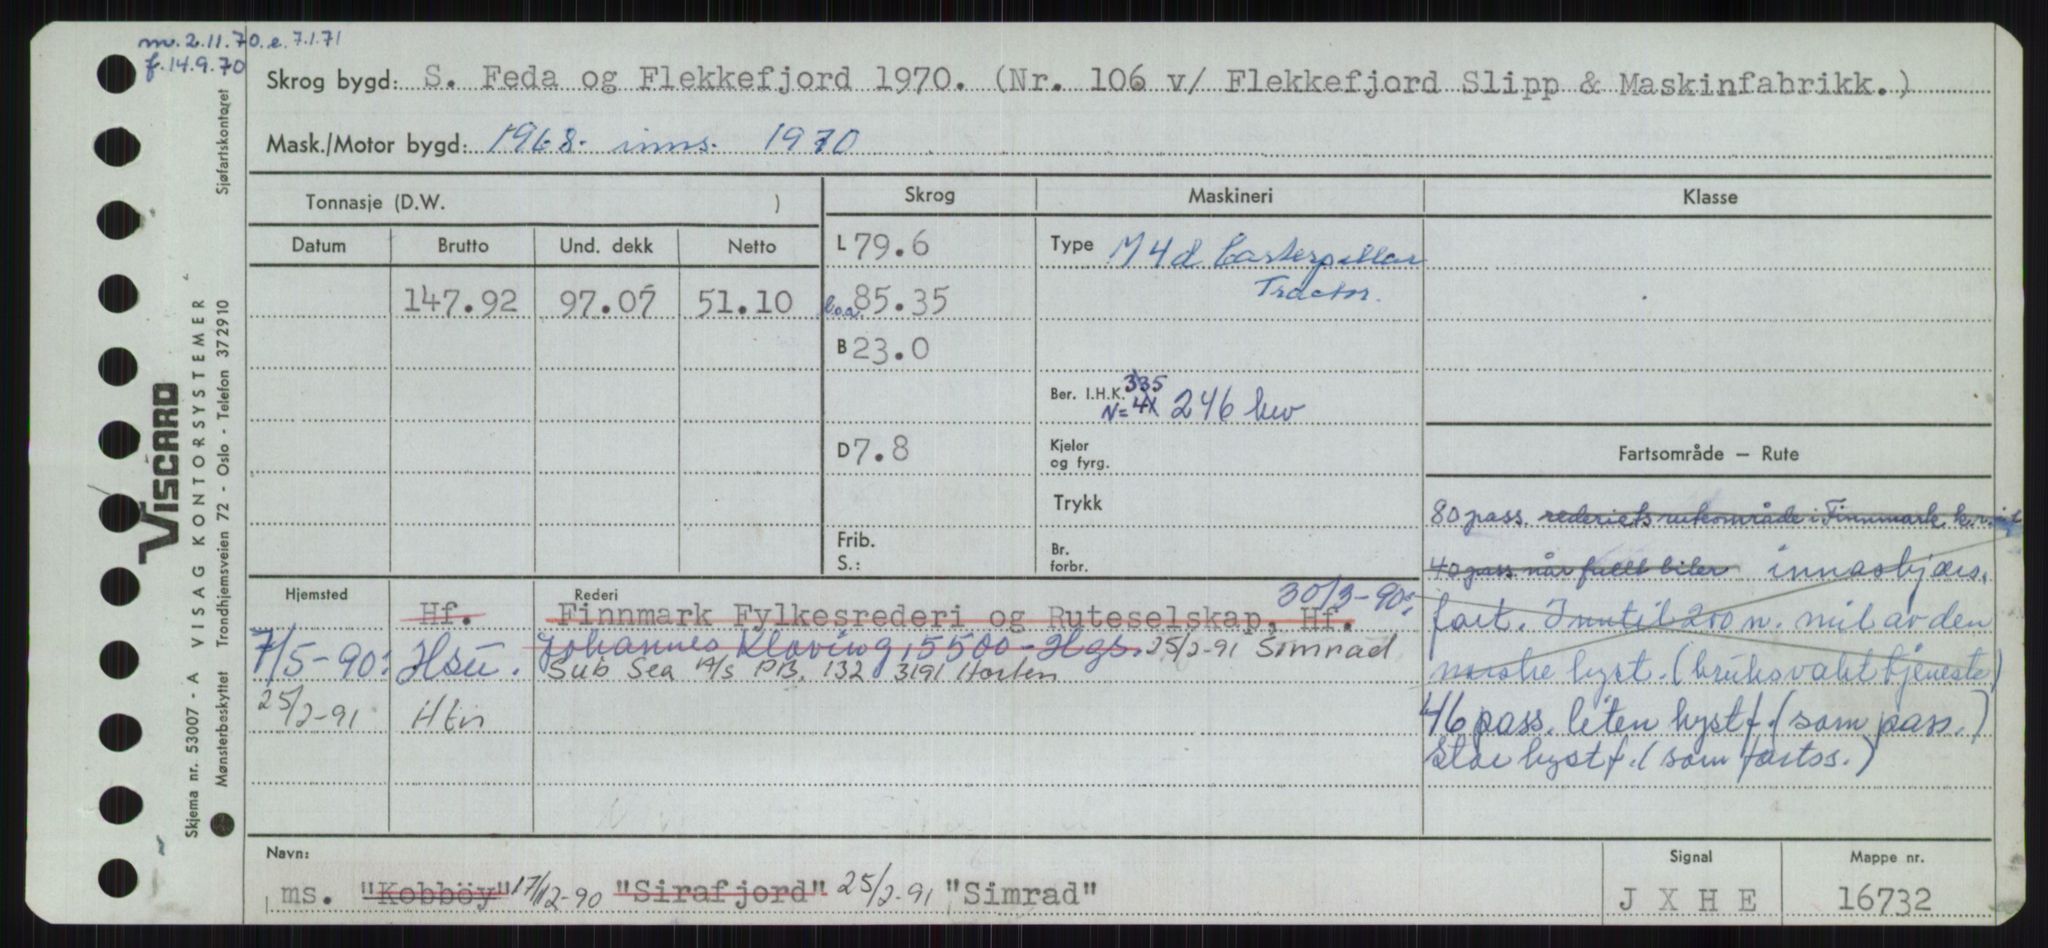 m. 2.11.70. e. 7.1.71
f. 14.9.70
Skrog bygd: S. Feda og Flekkefjord 1970. (Nr. 106 v/ Flekkefjord Slipp & Maskinfabrikk.)
Mask./Motor bygd: 1968. inns. 1970
Tonnasje (D.W. ) Skrog Maskineri Klasse
Datum Brutto Und. dekk Netto L 79.6 Type M 4d Casterpillar
Tractor.
147.92 97.07 51.10 l.o.a. 85.35
B 23.0
Ber. I.H.K. 335
N= 41 246 kw
D 7.8 Kjeler
og fyrg.
Fartsområde — Rute
Trykk
80 pass. rederiets ruteområde i Finnmark
Frib.
S.:
Br.
forbr.
40 pass når fullt biler innaskjærs.
Hjemsted Rederi 30/3-90:
Hf. Finnmark Fylkesrederi og Ruteselskap, Hf.
fart. Inntil 200 n. mil av den
7/5-90: Hsu. Johannes Kloving, 5500-Hgs. 25/2-91 Simrad
Sub Sea A/S PB. 132 3191 Horten
norske kyst. (bruksvakttjeneste)
25/2-91 Htn
46 pass. liten kystf. (som pass.)
Stor kystf. (som fartss.)
Navn: Signal Mappe nr.
ms. "Kobböy" 17/12-90 "Sirafjord" 25/2-91 "Simrad" J X H E 16732
VISCARD
VISAG KONTORSYSTEMER
Skjema nr. 53007 - A
Mønsterbeskyttet Trondhjemsveien 72 - Oslo - Telefon 372910
Sjøfartskontoret